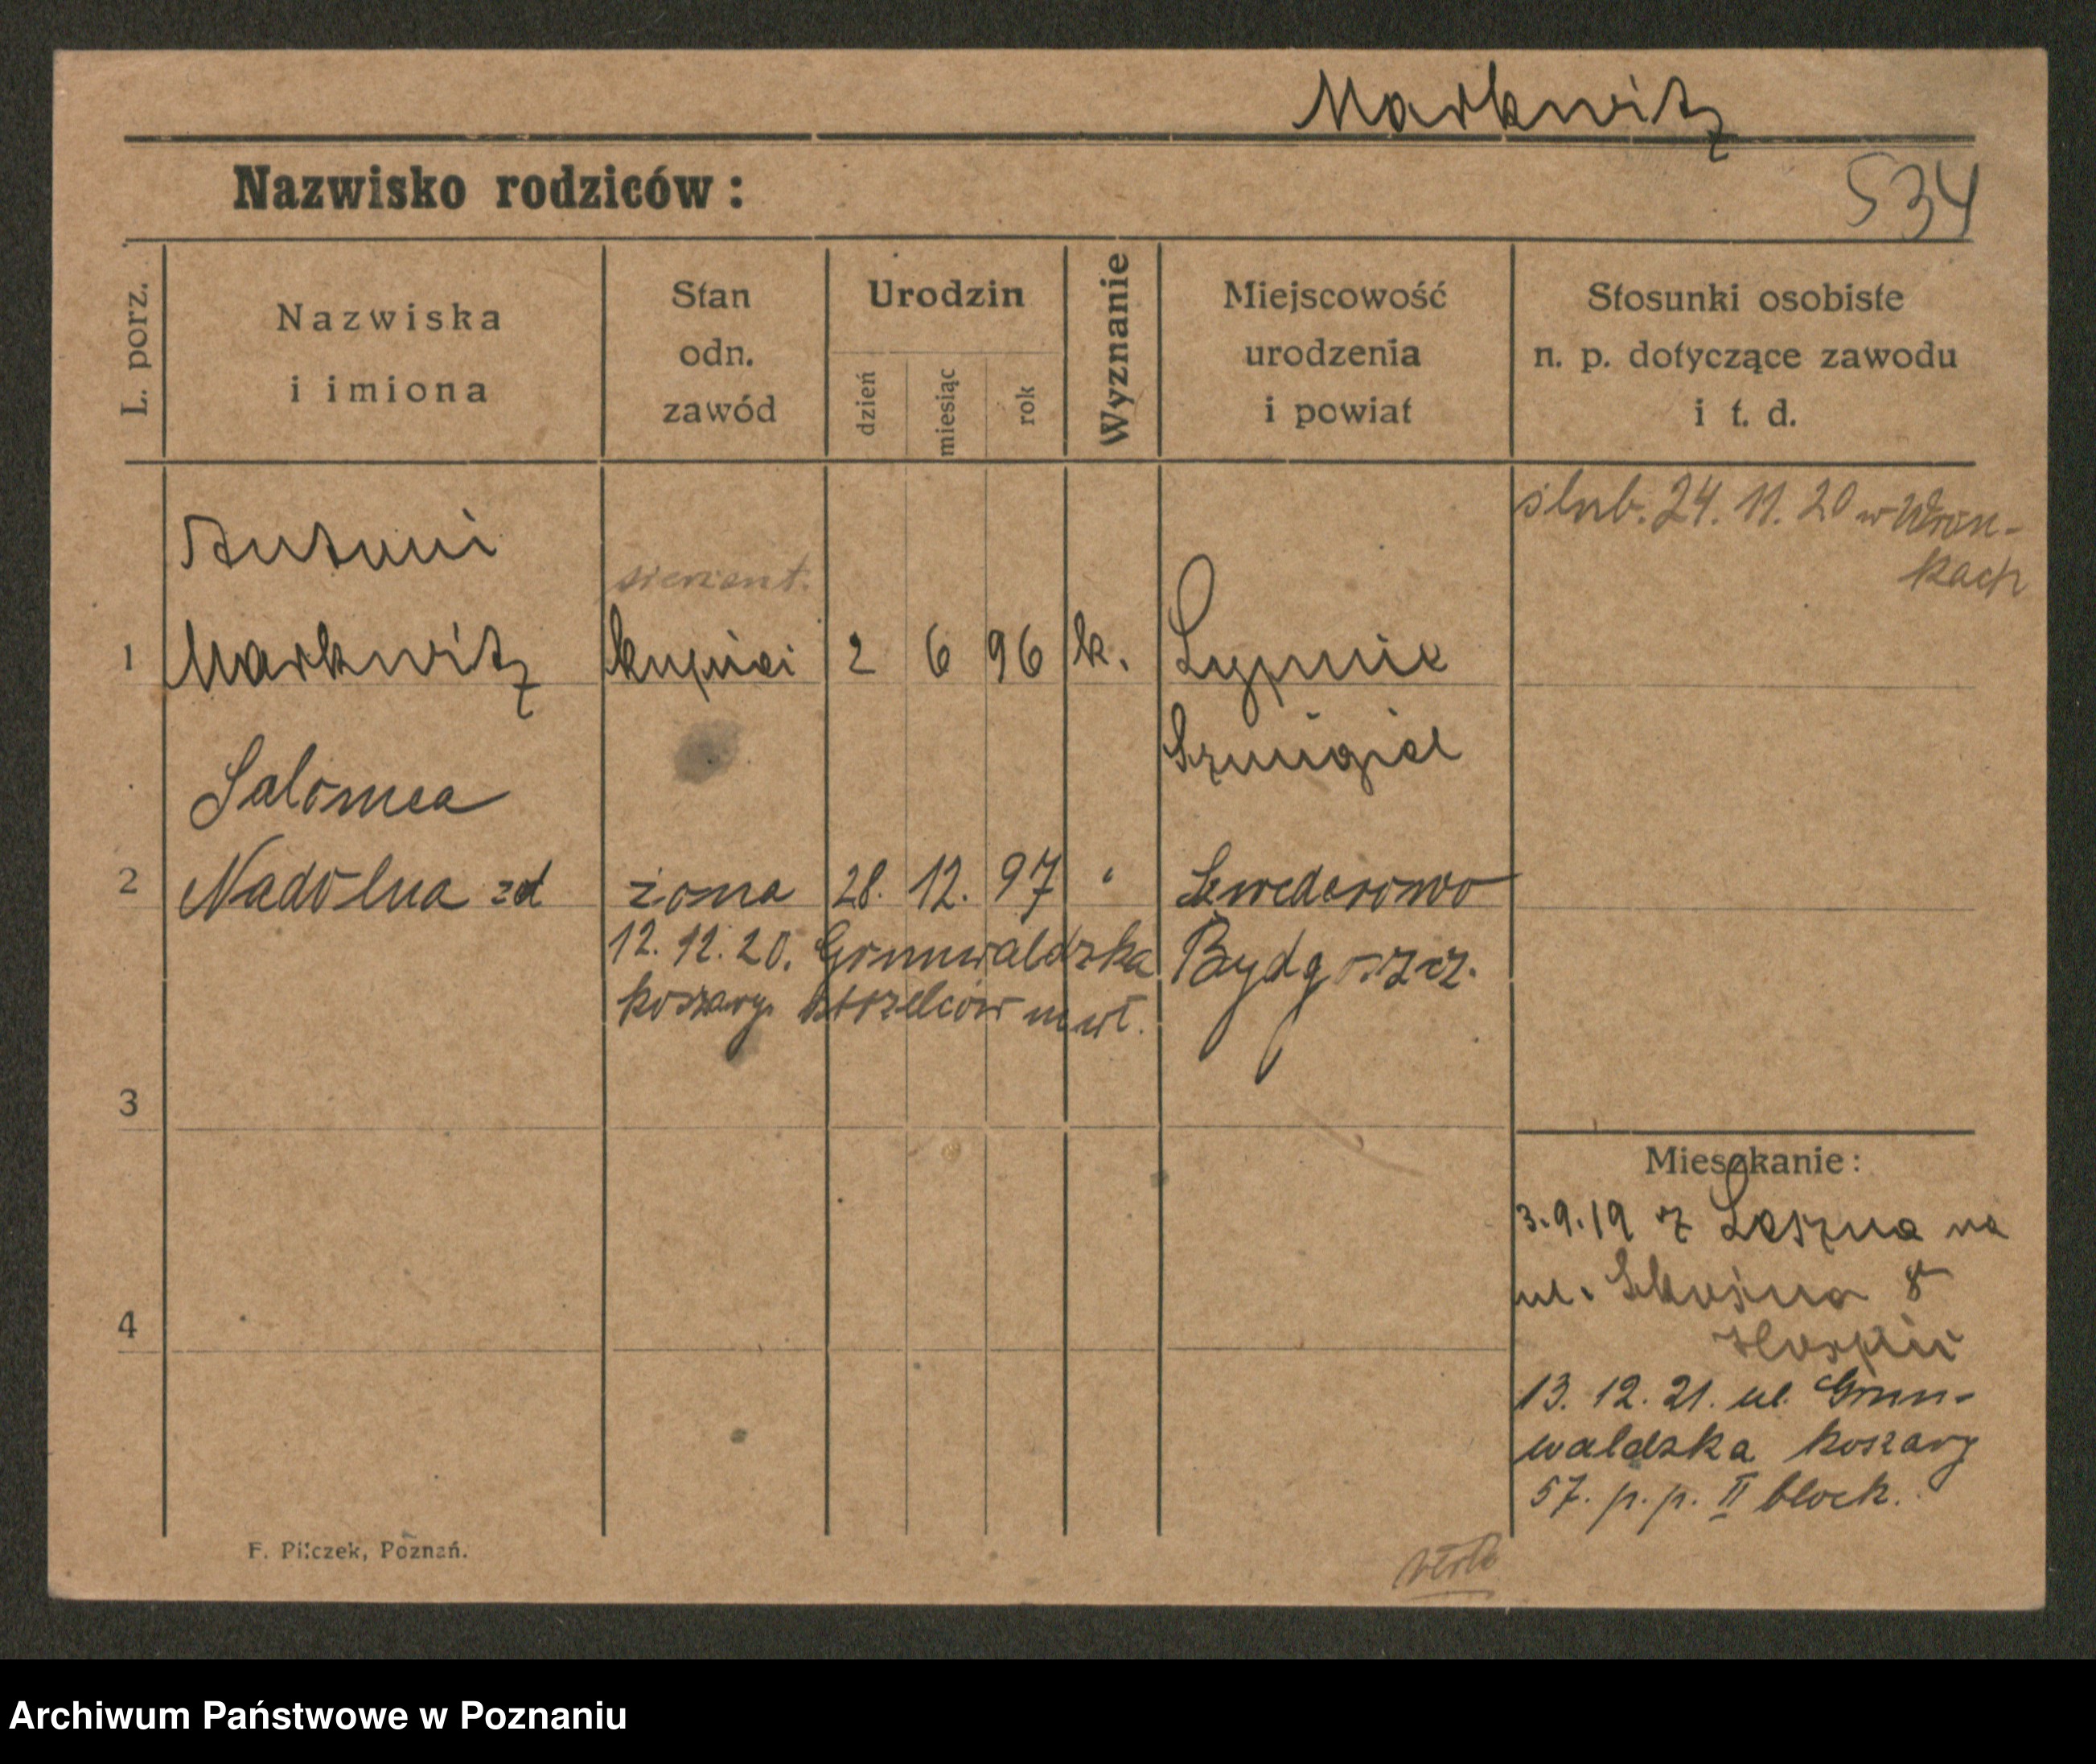 Markwitz
Nazwisko rodziców:
534
L. porz.
Nazwiska
i imiona
Stan
odn.
zawód
Urodzin
dzień
miesiąc
rok
Wyznanie
Miejscowość
urodzenia
i powiat
Stosunki osobiste
n. p. dotyczące zawodu
i t. d.
ślub. 24. 11. 20 w Wron-
kach
Antoni
sierżant.
1 Markwitz kupiec 2 6 96 k. Lypnie
Szmigiel
Salomea
2 Nadolna zd żona 28. 12. 97 " Szwederowo
12. 12. 20. Grunwaldzka Bydgoszcz.
koszary strzelców
3
Mieszkanie:
3.9.19 z Leszna na
ul. 8
4
13. 12. 21. ul. Grun-
waldzka koszary
57. p. p. II block.
F. Pilczek, Poznań.
Archiwum Państwowe w Poznaniu